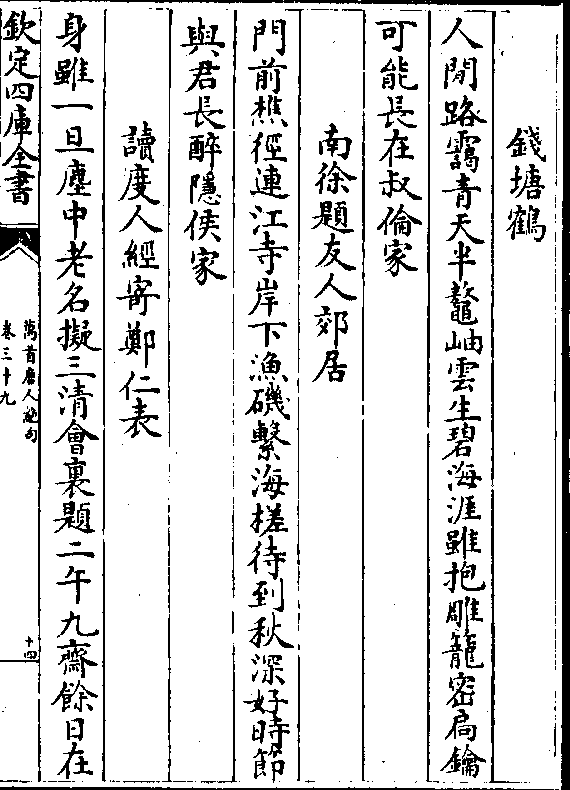 錢塘鶴
人間路靄青天半鼇岫雲生碧海涯雖抱雕籠密扄鑰
可能長在叔倫家
南徐題友人郊居
門前樵徑連江寺岸下漁磯繫海槎待到秋深好時節
與君長醉隱侯家
讀度人經寄鄭仁表
身雖一旦塵中老名擬三清會裏題二午九齋餘日在
欽定四庫全書
萬首唐人絶句
卷三十九
十四